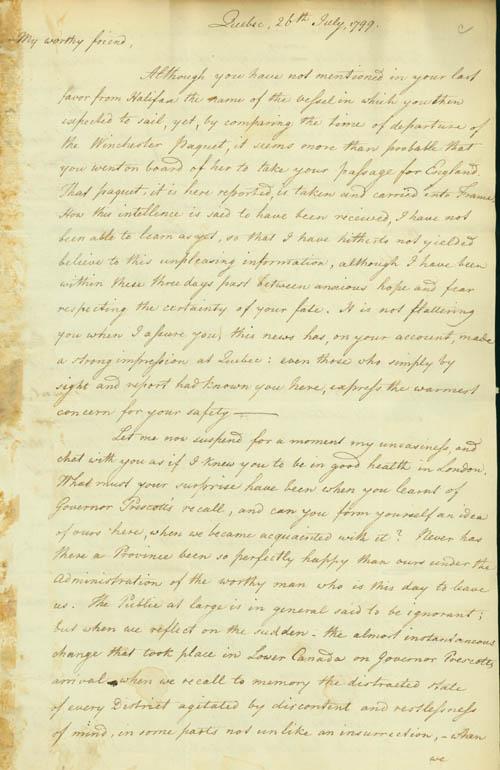 Quebec, 26th July, 1799.
My worthy friend,
Although you have not mentioned in your last
favor from Halifax the name of the vessel in which you then
expected to sail, yet, by comparing the time of departure of
the Winchester Paquet, it seems more than probable that
you went on board of her to take your passage for England.
That paquet, it is here reported, is taken and carried into France,
How this intellence is said to have been received, I have not
been able to learn as yet, so that I have hitherto not yielded
believe to this unpleasing information, although I have been
within these three days past between anxious hope and fear
respecting the certainty of your fate. It is not flattering
you when I assure you, this news has, on your account, made
a strong impression at Quebec: even those who simply by
sight and report had known you here, express the warmest
concern for your safety.
Let me now suspend for a moment my uneasiness, and
chat with you as if I knew you to be in good health in London.
What must your surprise have been when you learnt of
Governor Prescott's recall, and can you form yourself an idea
of ours here, when we became acquainted with it? Never has
there a Province been so perfectly happy than ours under the
Administration of the worthy man who is this day to leave
us. The Public at large is in general said to be ignorant;
but when we reflect on the sudden - the almost instantaneous
change that took place in Lower Canada on Governor Prescotts
arrival - when we recall to memory the distracted state
of every District agitated by discontent and restlessness
of mind, in some parts not unlike an insurrection, - when
we